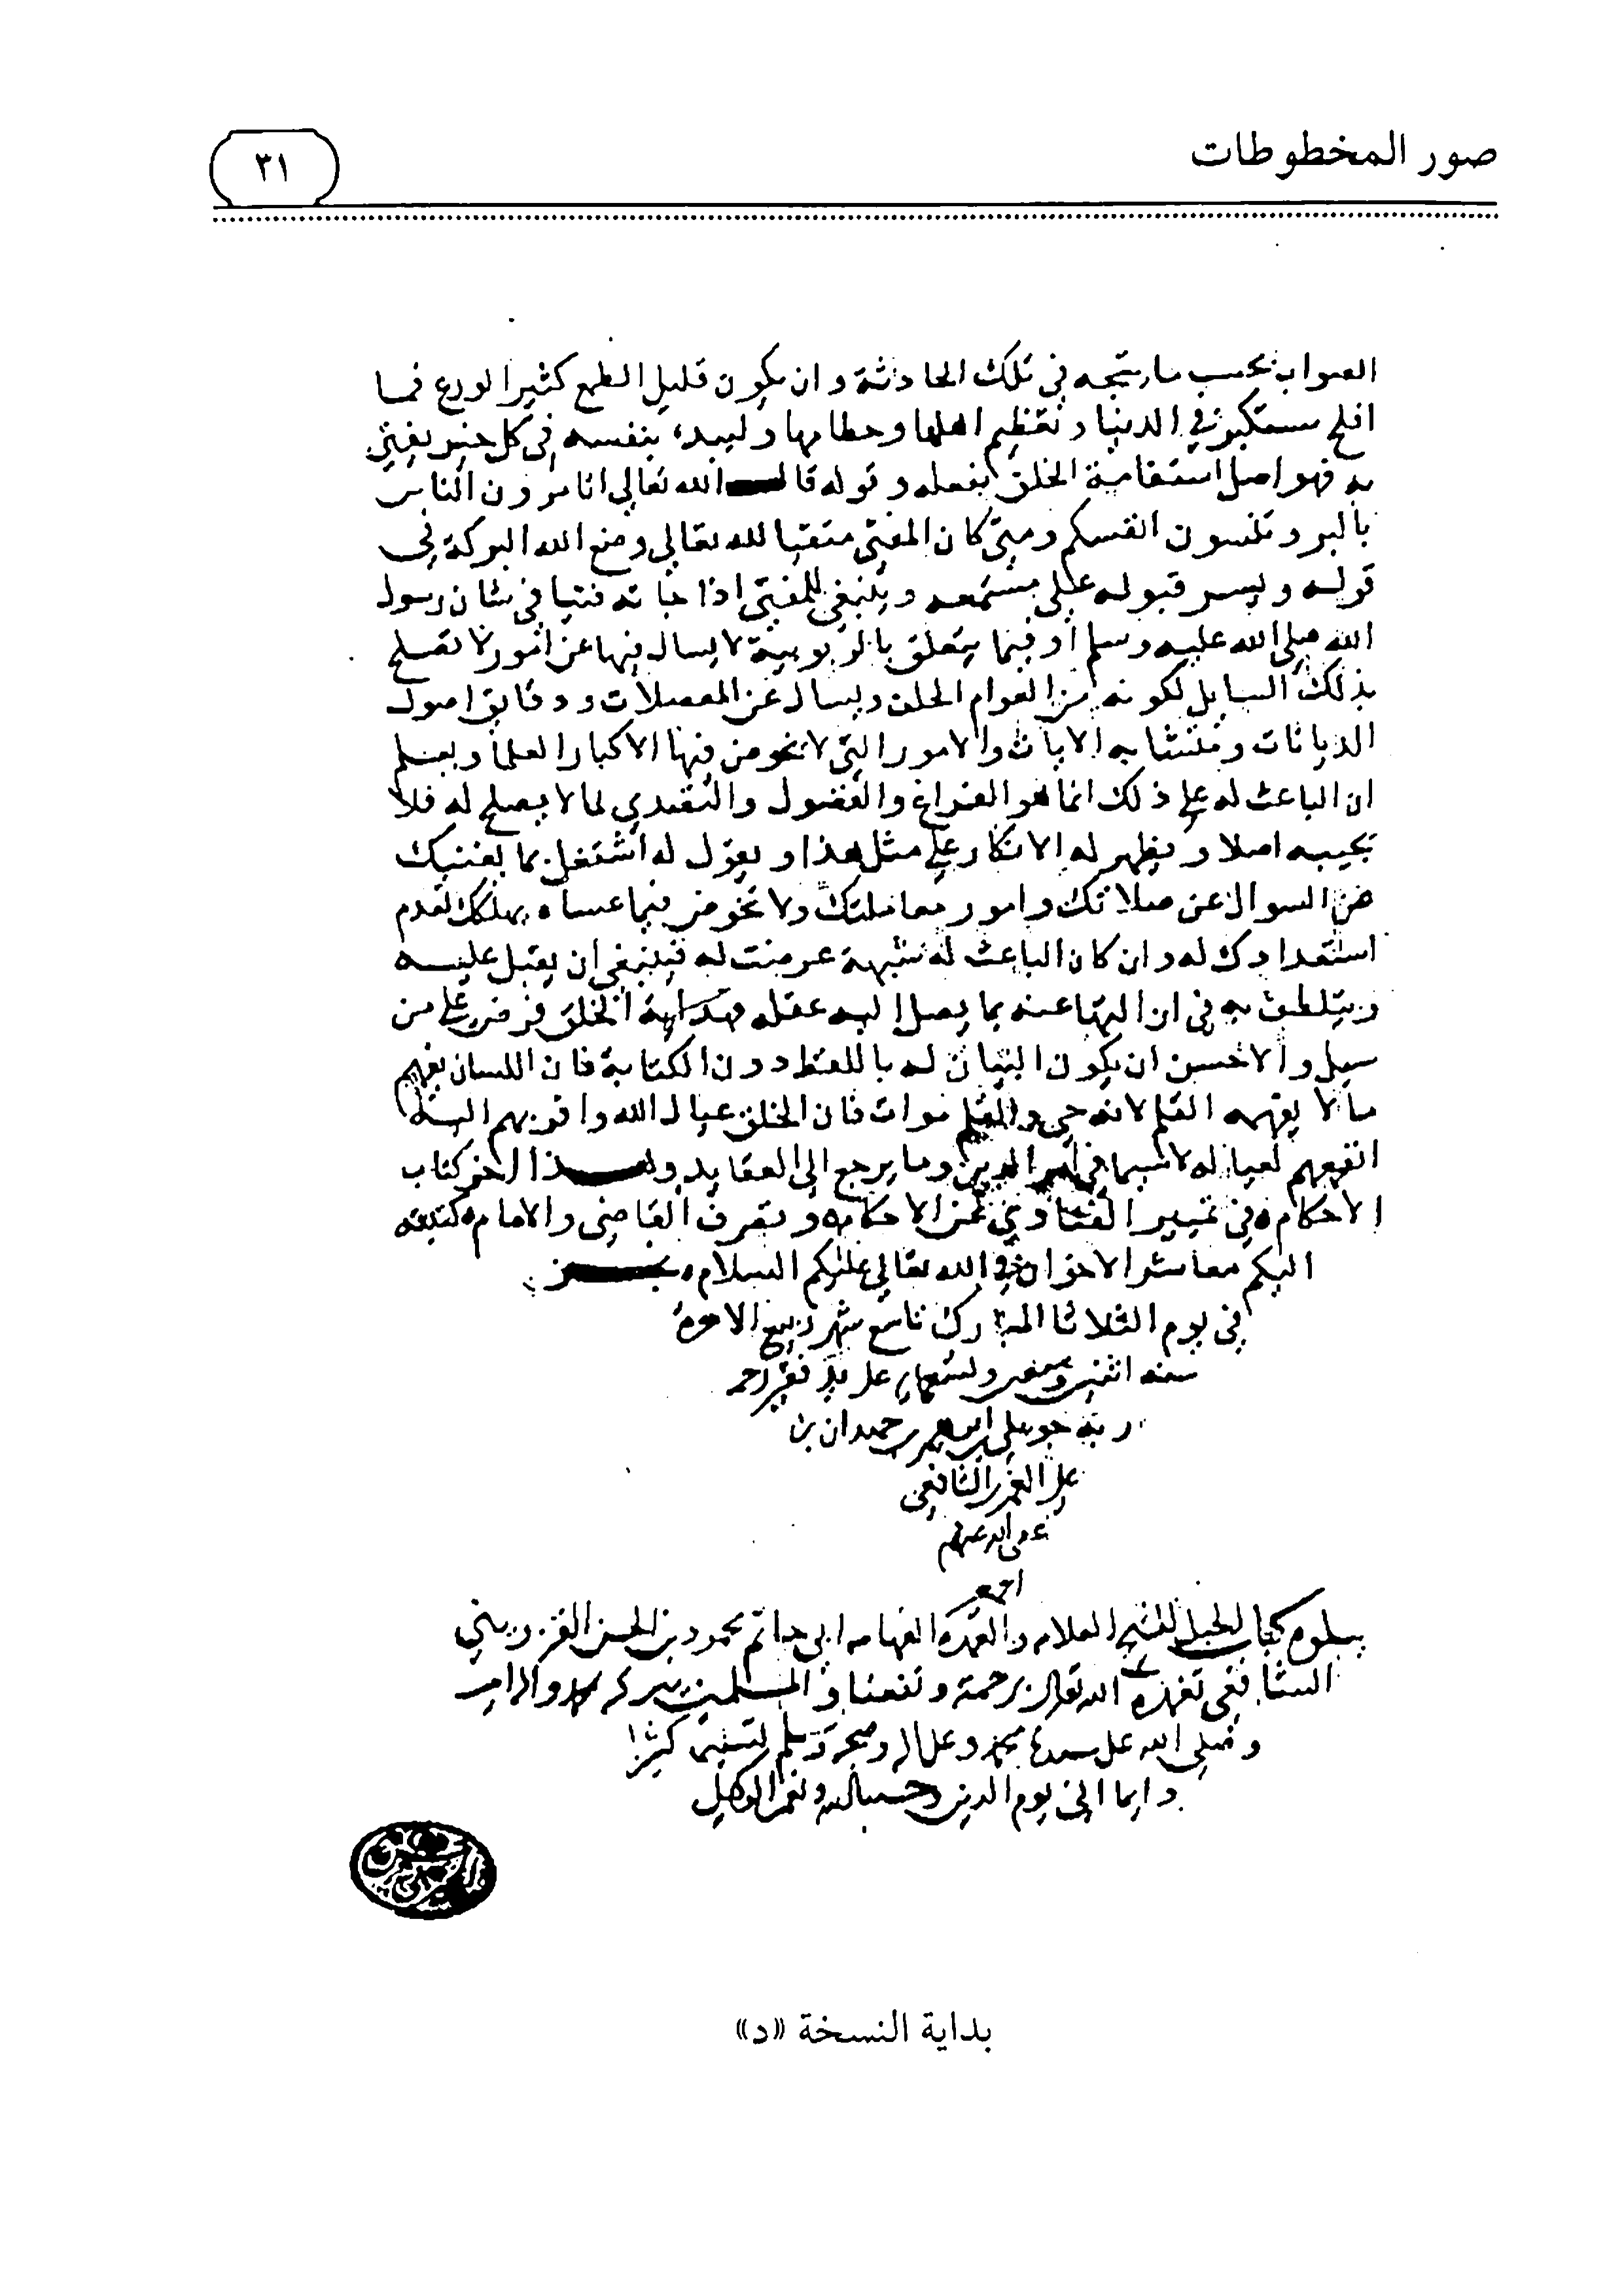 صور المخطوطات
٣١
الصواب بحسب ما يتجه في تلك الحادثة وان يكون قليل الطمع كثير الورع فما
افلح مستكبر في الدنيا وتعظيم اهلها وحطامها وليبدء بنفسه في كل خير يفتي
به فهو اصل استقامة الخلق بفعله وقوله قال الله تعالى اتامرون الناس
بالبر وتنسون انفسكم ومتى كان المفتي متقيا لله تعالى وضع الله البركة في
قوله ويسر قبوله على مستمعه وينبغي للمفتي اذا جاته فتيا في شان رسول
الله صلى الله عليه وسلم او فيما يتعلق بالربوبية لا يسال فيها عن امور لا تصلح
بذلك السايل لكونه من العوام الحلف ويسال عن المعضلات ودقايق اصول
الديانات ومتشابه الايات والامور التي لا يخوض فيها الا كبار العلما ويعلم
ان الباعث له على ذلك انما هو الفراغ والفضول والتعدي لما لا يصلح له فلا
يجيبه اصلا ويظهر له الانكار على مثل هذا ويقول له اشتغل بما يعنيك
من السوال عن صلاتك وامور معاملتك ولا تخوض فيما عساه يهلكك لعدم
استعدادك له وان كان الباعث له شبهة عرضت له فينبغي ان يقبل عليه
ويتلطف به في ازالتها عنه بما يصل اليه عقله فهداية الخلق فرض على من
سيل والاحسن ان يكون البيان له باللفظ دون الكتابة فان اللسان يفهم
ما لا يفهمه القلم لانه حي والقلم موات فان الخلق عيال الله واقربهم اليه
انفعهم لعياله لا سيما في امر الدين وما يرجع الى العقايد وهذا اخر كتاب
الاحكام في تمييز الفتاوي عن الاحكام وتصرف القاضي والامام كتبته
اليكم معاشر الاخوان في الله تعالى عليكم السلام
في يوم الثلاثا المبارك تاسع شهر ربيع الاخر
سنه اثنين وتسعمايه على يد فقير رحمة
ربه حمدان بن
على الشافعي
عفى الله عنهم
اجمعين
يتلوه كتاب الحيل للشيخ العلامه والعمدة الفهامه ابي حاتم محمود بن الحسن القزويني
الشافعي تغمده الله تعالى برحمته ونفعنا والمسلمين ببركته
وصلى الله على سيدنا محمد وعلى اله وصحبه وسلم تسليما كثيرا
دايما الى يوم الدين وحسبنا الله ونعم الوكيل
بداية النسخة «د»